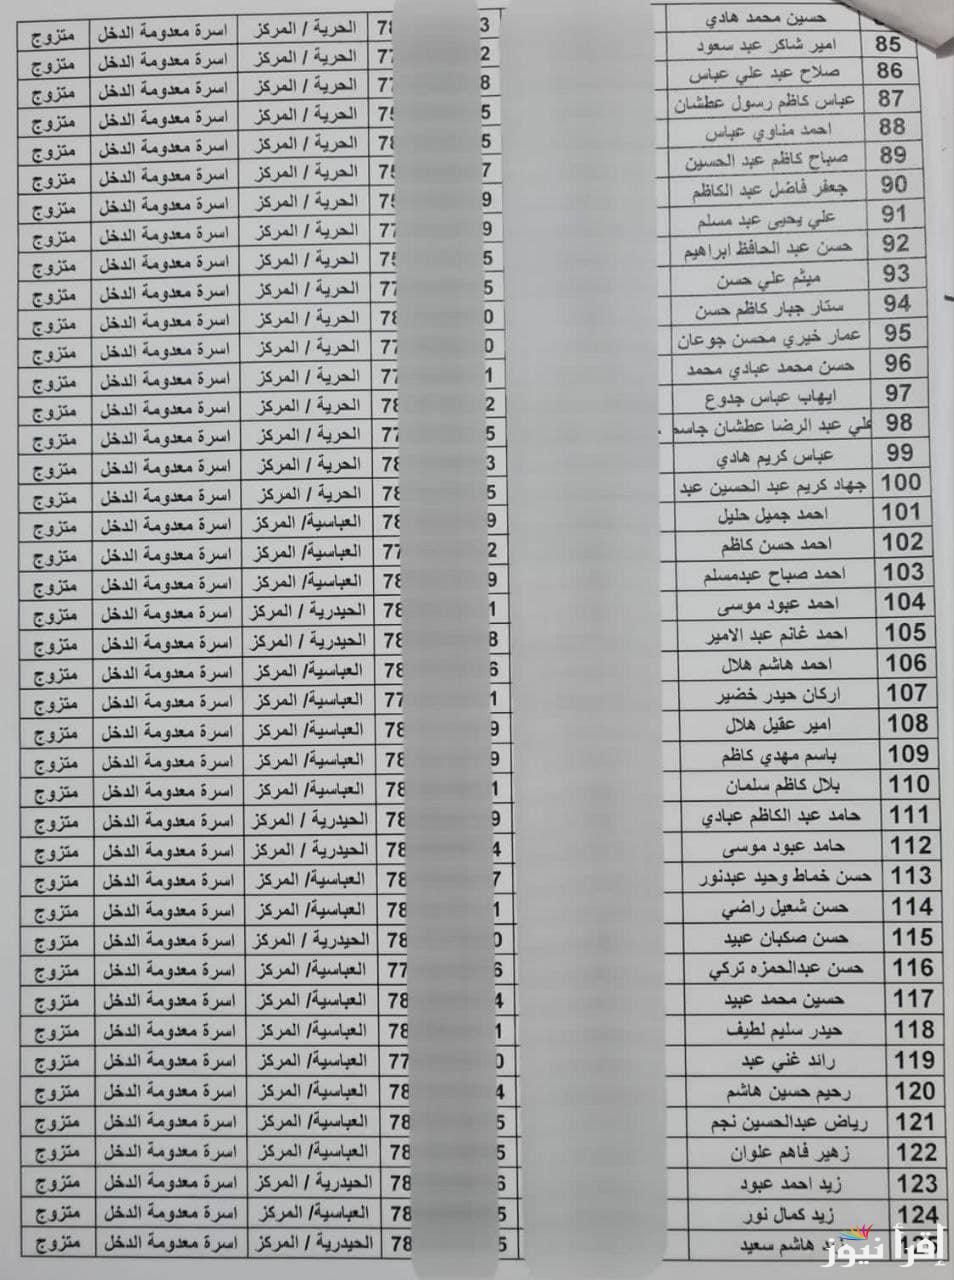 حسين محمد هادي 3 78 الحرية / المركز اسرة معدومة الدخل متزوج
85 امير شاكر عبد سعود 2 77 الحرية / المركز اسرة معدومة الدخل متزوج
86 صلاح عبد علي عباس 8 77 الحرية / المركز اسرة معدومة الدخل متزوج
87 عباس كاظم رسول عطشان 5 75 الحرية / المركز اسرة معدومة الدخل متزوج
88 احمد مناوي عباس 5 78 الحرية / المركز اسرة معدومة الدخل متزوج
89 صباح كاظم عبد الحسين 7 75 الحرية / المركز اسرة معدومة الدخل متزوج
90 جعفر فاضل عبد الكاظم 9 75 الحرية / المركز اسرة معدومة الدخل متزوج
91 علي يحيى عبد مسلم 9 77 الحرية / المركز اسرة معدومة الدخل متزوج
92 حسن عبد الحافظ ابراهيم 5 75 الحرية / المركز اسرة معدومة الدخل متزوج
93 ميثم علي حسن 5 77 الحرية / المركز اسرة معدومة الدخل متزوج
94 ستار جبار كاظم حسن 0 78 الحرية / المركز اسرة معدومة الدخل متزوج
95 عمار خيري محسن جوعان 0 77 الحرية / المركز اسرة معدومة الدخل متزوج
96 حسن محمد عبادي محمد 1 77 الحرية / المركز اسرة معدومة الدخل متزوج
97 ايهاب عباس جدوع 2 78 الحرية / المركز اسرة معدومة الدخل متزوج
98 علي عبد الرضا عطشان جاسم 5 77 الحرية / المركز اسرة معدومة الدخل متزوج
99 عباس كريم هادي 3 78 الحرية / المركز اسرة معدومة الدخل متزوج
100 جهاد كريم عبد الحسين عبد 5 78 الحرية / المركز اسرة معدومة الدخل متزوج
101 احمد جميل حليل 9 78 العباسية/ المركز اسرة معدومة الدخل متزوج
102 احمد حسن كاظم 2 77 العباسية/ المركز اسرة معدومة الدخل متزوج
103 احمد صباح عبدمسلم 9 78 العباسية/ المركز اسرة معدومة الدخل متزوج
104 احمد عبود موسى 1 78 الحيدرية / المركز اسرة معدومة الدخل متزوج
105 احمد غانم عبد الامير 8 78 الحيدرية / المركز اسرة معدومة الدخل متزوج
106 احمد هاشم هلال 6 78 العباسية/ المركز اسرة معدومة الدخل متزوج
107 اركان حيدر خضير 1 77 العباسية/ المركز اسرة معدومة الدخل متزوج
108 امير عقيل هلال 9 78 العباسية/ المركز اسرة معدومة الدخل متزوج
109 باسم مهدي كاظم 9 78 العباسية/ المركز اسرة معدومة الدخل متزوج
110 بلال كاظم سلمان 1 78 العباسية/ المركز اسرة معدومة الدخل متزوج
111 حامد عبد الكاظم عبادي 9 78 الحيدرية / المركز اسرة معدومة الدخل متزوج
112 حامد عبود موسى 4 78 الحيدرية / المركز اسرة معدومة الدخل متزوج
113 حسن خماط وحيد عبدنور 7 78 العباسية/ المركز اسرة معدومة الدخل متزوج
114 حسن شعيل راضي 1 78 العباسية/ المركز اسرة معدومة الدخل متزوج
115 حسن صكبان عبيد 0 78 الحيدرية / المركز اسرة معدومة الدخل متزوج
116 حسن عبدالحمزه تركي 6 77 العباسية/ المركز اسرة معدومة الدخل متزوج
117 حسين محمد عبيد 4 78 العباسية/ المركز اسرة معدومة الدخل متزوج
118 حيدر سليم لطيف 1 78 العباسية/ المركز اسرة معدومة الدخل متزوج
119 رائد غني عبد 0 77 العباسية/ المركز اسرة معدومة الدخل متزوج
120 رحيم حسين هاشم 4 78 العباسية/ المركز اسرة معدومة الدخل متزوج
121 رياض عبدالحسين نجم 5 78 العباسية/ المركز اسرة معدومة الدخل متزوج
122 زهير فاهم علوان 5 78 العباسية/ المركز اسرة معدومة الدخل متزوج
123 زيد احمد عبود 6 78 الحيدرية / المركز اسرة معدومة الدخل متزوج
124 زيد كمال نور 5 78 العباسية/ المركز اسرة معدومة الدخل متزوج
هاشم سعيد 5 78 الحيدرية / المركز اسرة معدومة الدخل متزوج
إقرأ نيوز